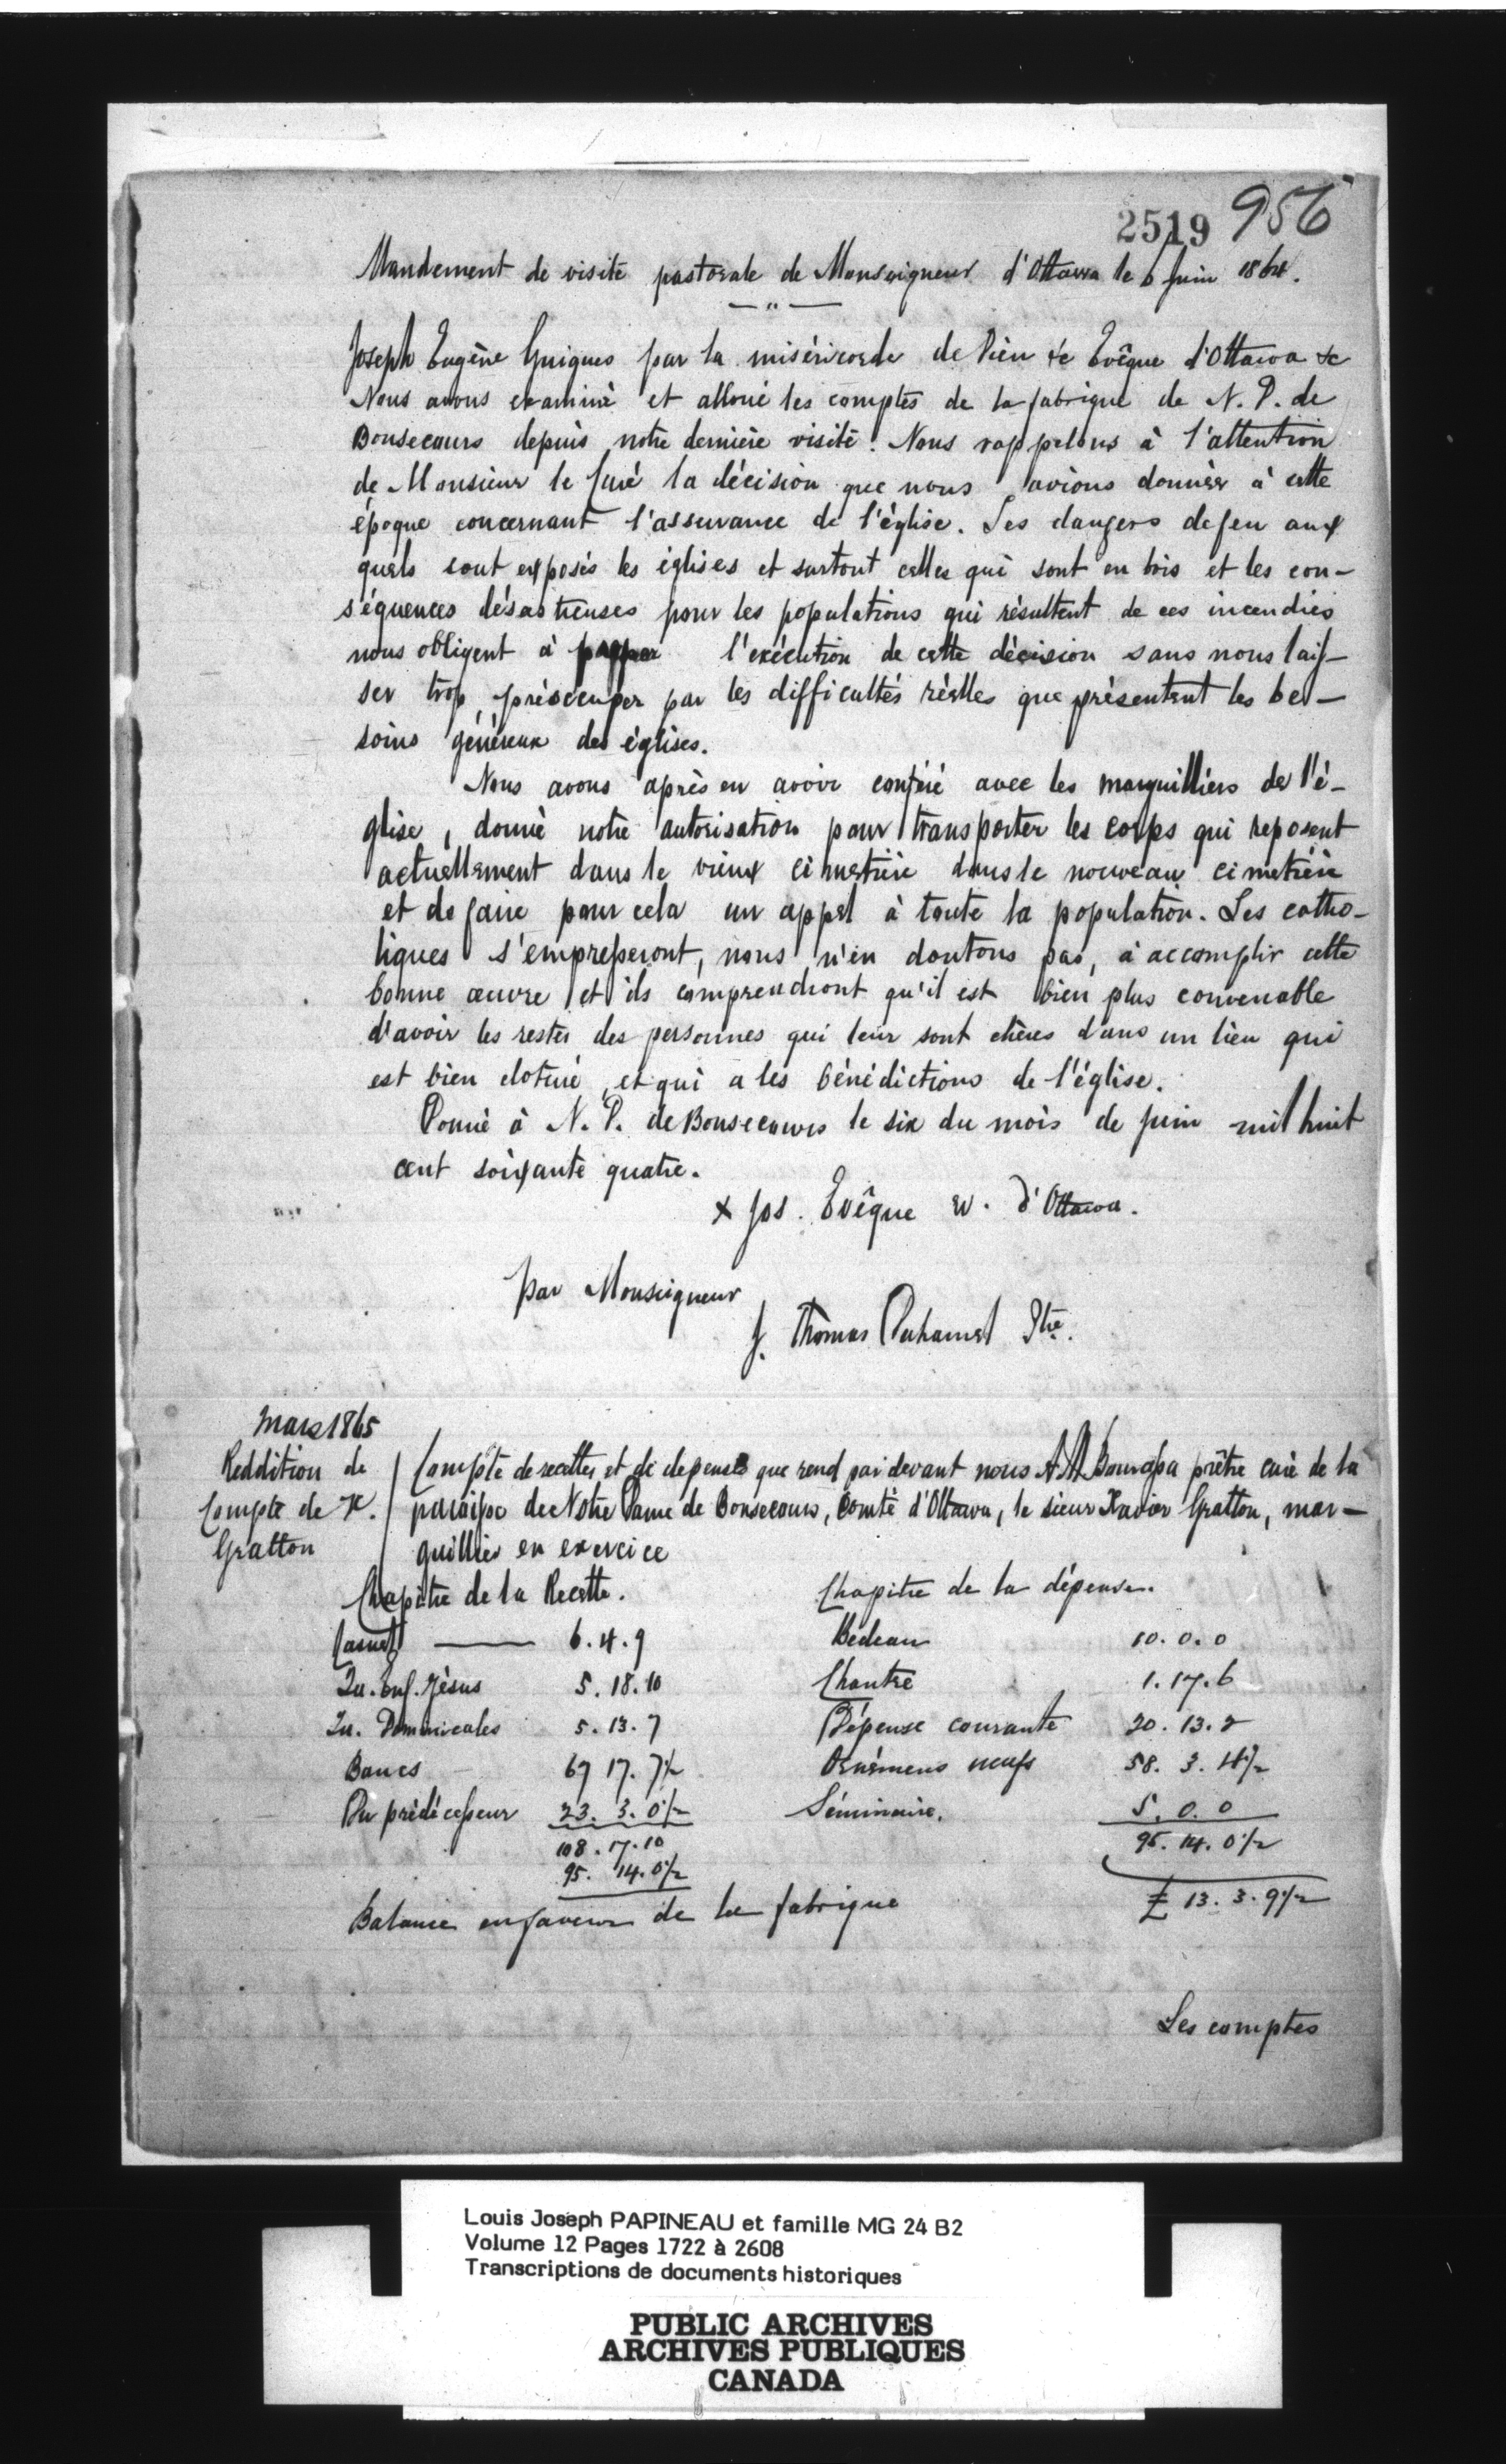 2519 956
Mandement de visite pastorale de Monseigneur d'Ottawa le 6 Juin 1864.
— " —
Joseph Eugène Guigues par la miséricorde de Dieu &c Evêque d'Ottawa &c
Nous avons examiné et alloué les comptes de la fabrique de N. D. de
Bonsecours depuis notre dernière visite. Nous rappelons à l'attention
de Monsieur le Curé la décision que nous avions donnée à cette
époque concernant l'assurance de l'église. Les dangers de feu aux
quels sont exposés les églises et surtout celles qui sont en bois et les con-
séquences désastreuses pour les populations qui résultent de ces incendies
nous obligent à l'exécution de cette décision sans nous lais-
ser trop préoccuper par les difficultés réelles que présentent les be-
soins généraux des églises.
Nous avons après en avoir conféré avec les marguilliers de l'é-
glise, donné notre autorisation pour transporter les corps qui reposent
actuellement dans le vieux cimetière dans le nouveau cimetière
et de faire pour cela un appel à toute la population. Les catho-
liques s'empresseront, nous n'en doutons pas, à accomplir cette
bonne œuvre et ils comprendront qu'il est bien plus convenable
d'avoir les restes des personnes qui leur sont chères dans un lieu qui
est bien cloturé et qui a les bénédictions de l'église.
Donné à N. D. de Bonsecours le six du mois de juin mil huit
cent soixante quatre.
x Jos. Evêque d'Ottawa.
par Monseigneur
J. Thomas Duhamel Ptre.
Mars 1865
Reddition de
Compte de X.
Gratton
Compte de recettes et de depenses que rend par devant nous A. M. Bourassa prêtre curé de la
paroisse de Notre Dame de Bonsecours, Comté d'Ottawa, le sieur Xavier Gratton, mar-
guillier en exercice
Chapitre de la Recette. Chapitre de la dépense.
Casuel — 6. 4. 9 Bedeau 10. 0. 0
Qu. Enf. Jésus 5. 18. 10 Chantre 1. 17. 6
Qu. Dominicales 5. 13. 7 Dépense courante 20. 13. 2
Bancs 67 17. 7½ Ornémens neufs 58. 3. 4½
Du prédécesseur 23. 3. 0½ Séminaire. 5. 0. 0
108. 17. 10 95. 14. 0½
95. 14. 0½
Balance en faveur de la fabrique £ 13. 3. 9½
Les comptes
Louis Joseph PAPINEAU et famille MG 24 B2
Volume 12 Pages 1722 à 2608
Transcriptions de documents historiques
PUBLIC ARCHIVES
ARCHIVES PUBLIQUES
CANADA